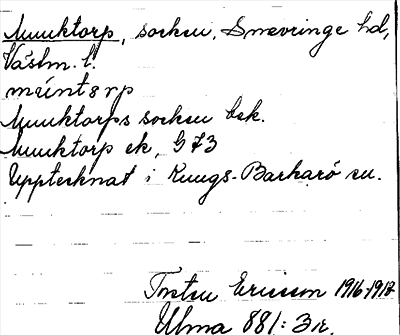 Munktorp, socken, Snevringe hd,
Västm. l.
múntørp
Munktorps socken bek.
Munktorp ek, G 73
Upptecknat i Kungs-Barkarö sn.
Torsten Ericsson 1916-1917
Ulma 881:3 r.